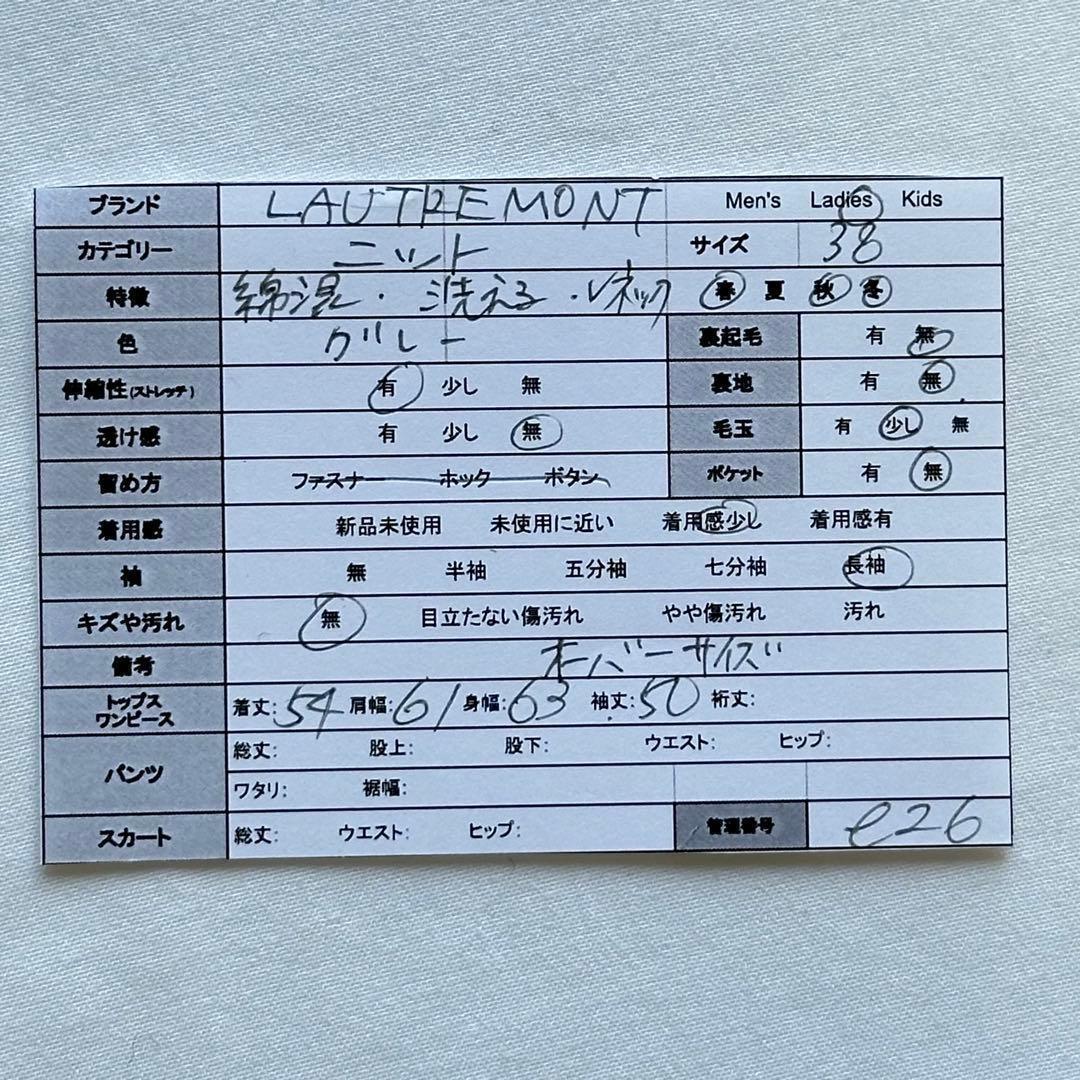 ブランド LAUTREMONT Men's Ladies Kids
カテゴリー ニット サイズ 38
特徴 綿混・洗える・Vネック 春 夏 秋 冬
色 グレー 裏起毛 有 無
伸縮性(ストレッチ) 有 少し 無 裏地 有 無
透け感 有 少し 無 毛玉 有 少し 無
留め方 ファスナー ホック ボタン ポケット 有 無
着用感 新品未使用 未使用に近い 着用感少し 着用感有
袖 無 半袖 五分袖 七分袖 長袖
キズや汚れ 無 目立たない傷汚れ やや傷汚れ 汚れ
備考 オーバーサイズ
トップス
ワンピース 着丈:54 肩幅:61 身幅:63 袖丈:50 裄丈:
パンツ 総丈: 股上: 股下: ウエスト: ヒップ:
ワタリ: 裾幅:
スカート 総丈: ウエスト: ヒップ: 管理番号 e26